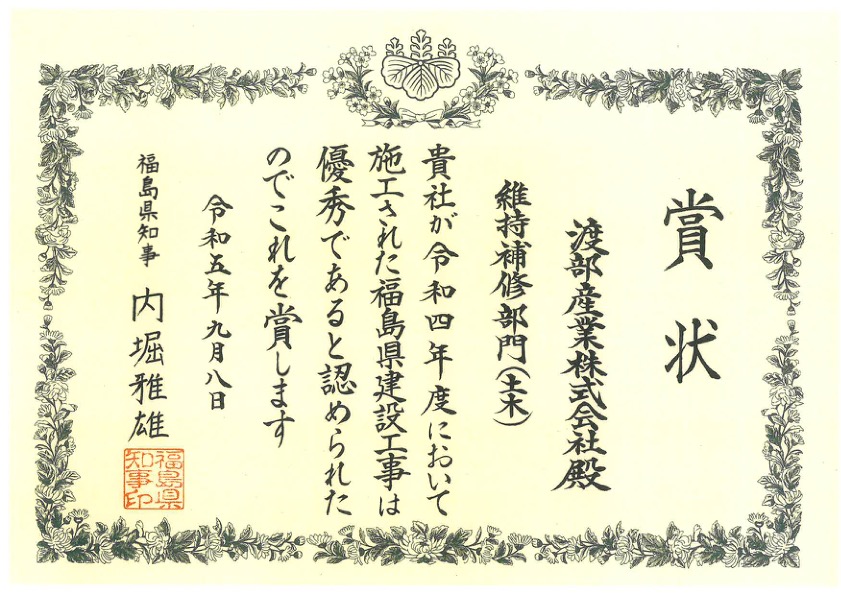 賞状
渡部産業株式会社殿
維持補修部門(土木)
貴社が令和四年度において
施工された福島県建設工事は
優秀であると認められた
のでこれを賞します
令和五年九月八日
福島県知事 内堀雅雄
福島県
知事印